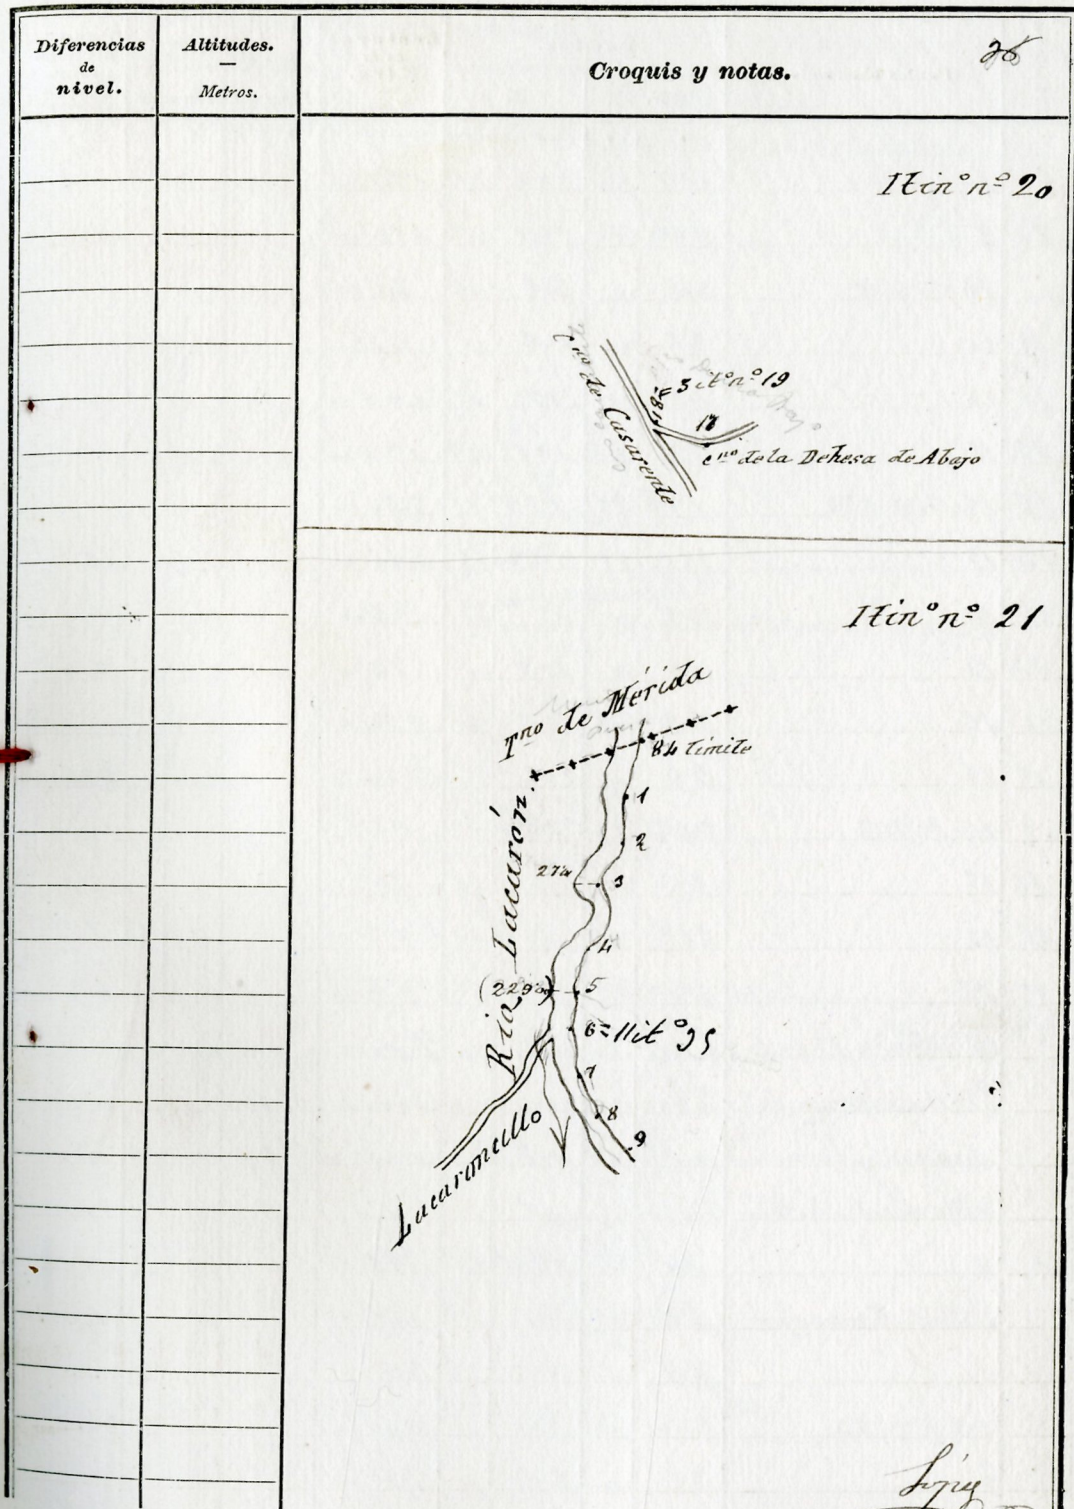 Diferencias
de
nivel.
Altitudes.
Metros.
Croquis y notas.
26
Itinº nº 20
Cno de Casarente
18=3 itº nº 19
17
cno de la Dehesa de Abajo
Itinº nº 21
Tno de Mérida
84 límite
1
2
3
4
(229
5
6=11 itº
7
8
9
Río Lacarón.
Lacaroncillo
López